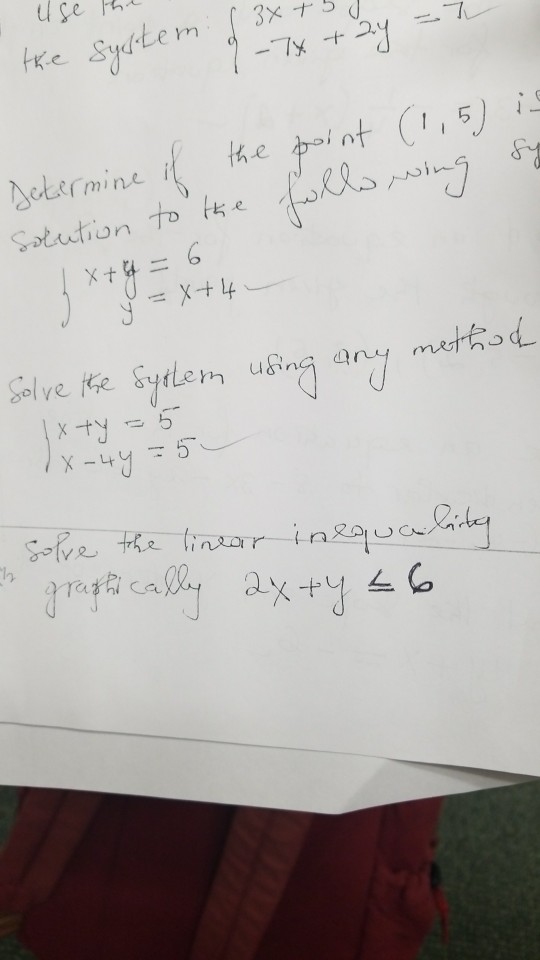 use the
3x + 5y
the system: { -7x + 2y = 7
Determine if the point (1, 5) is
solution to the following sy
{ x+y = 6
y = x+4
Solve the system using any method
{ x+y = 5
x-4y = 5
Solve the linear inequality
graphically 2x+y ≤ 6